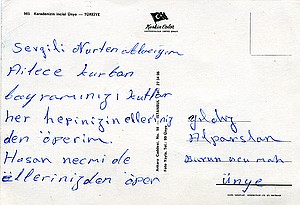 963 Karadenizin incisi Ünye — TÜRKİYE
Keskin Color
Sevgili Nurten ablacığım
Ailece kurban
bayramınızı kutlar
her hepinizin ellerinizi
den öperim.
Hasan necmi de
ellerinizden öper
yıldız
Alparslan
ünye